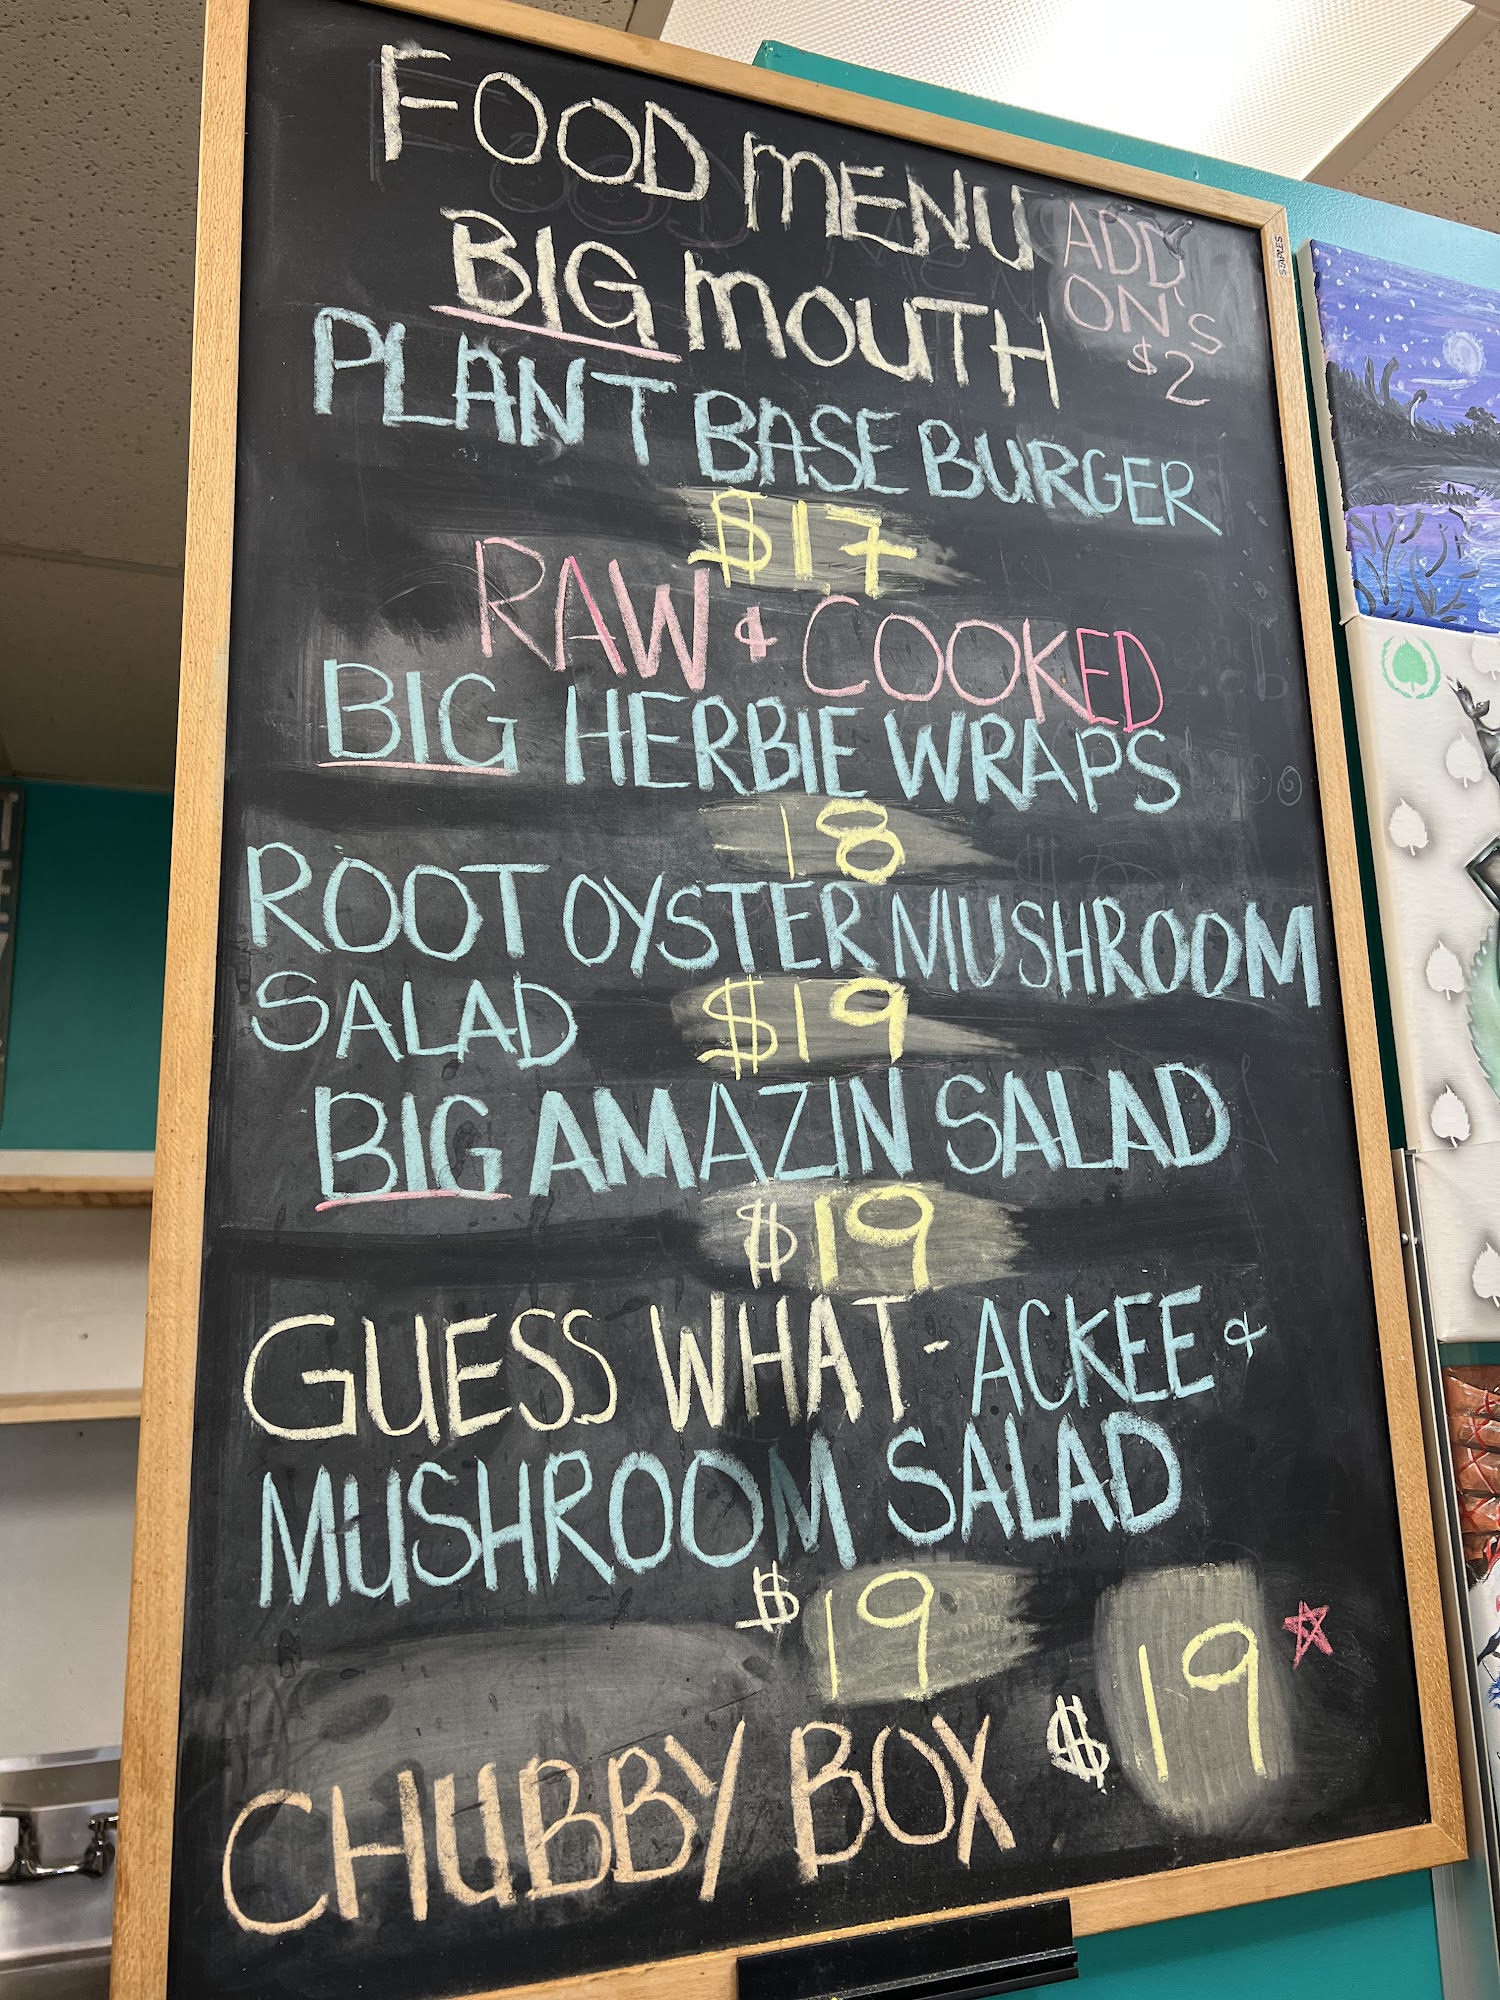 FOOD MENU
ADD
ON'S
$2
BIG MOUTH
PLANT BASE BURGER
$17
RAW & COOKED
BIG HERBIE WRAPS
18
ROOT OYSTER MUSHROOM
SALAD $19
BIG AMAZIN SALAD
$19
GUESS WHAT - ACKEE &
MUSHROOM SALAD
$19
CHUBBY BOX $19
STAPLES